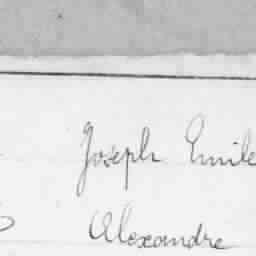 Joseph Emile
Alexandre